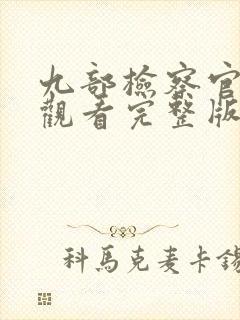 九部檢察官
觀看完整版
科馬克麦卡錫